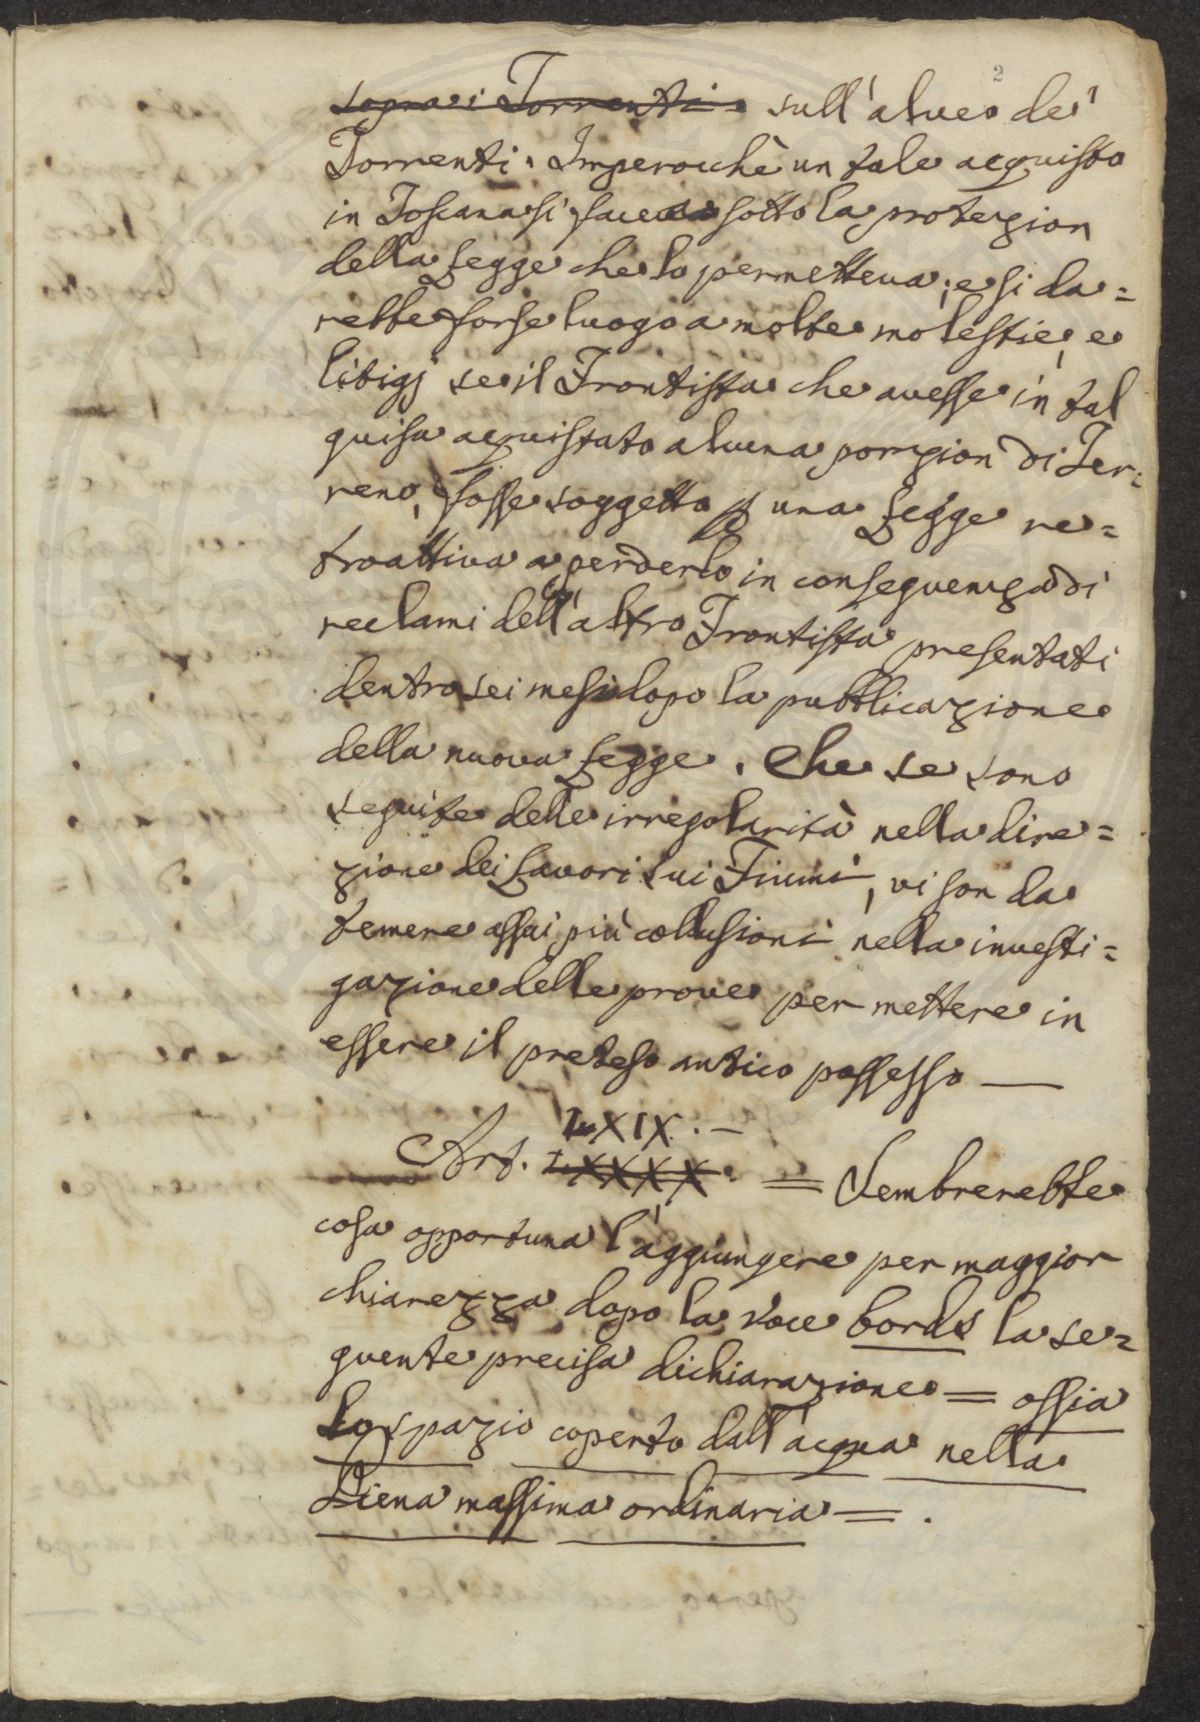 2
sopra i Torrenti sull'alveo de'
Torrenti. Imperocchè un tale acquisto
in Toscana si faceva sotto la protezion
della Legge che lo permetteva; e si da=
rebbe forse luogo a molte molestie, e
litigj se il Frontista che avesse in tal
guisa acquistato alcuna porzion di Ter=
reno, fosse soggetto p una Legge re=
troattiva a perderlo in conseguenza di
reclami dell'altro Frontista presentati
dentro sei mesi dopo la pubblicazione
della nuova Legge. Che se sono
seguite delle irregolarità nella dire=
zione dei Lavori sui Fiumi, vi son da
temere assai più collusioni nella investi=
gazione delle prove per mettere in
essere il preteso antico possesso —
LXIX. —
Art. LXXXX. = Sembrerebbe
cosa opportuna l'aggiungere per maggior
chiarezza dopo la voce bords la se=
guente precisa dichiarazione = ossia
lo spazio coperto dall'acqua nella
Piena massima ordinaria = .